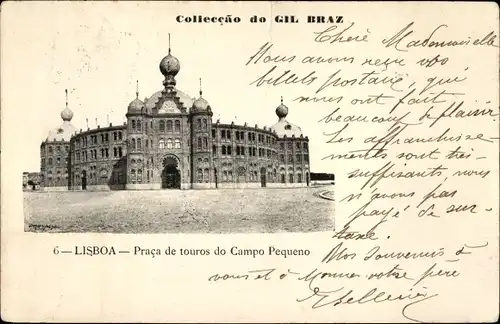 Collecção do GIL BRAZ
Chère Mademoiselle
Nous avons reçu vos
billets postaux, qui
nous ont fait
beaucoup de plaisir.
Les affranchisse-
ments sont très-
suffisants, nous
n'avons pas
payé de sur-
taxe.
Nos souvenirs à
vous et à Monsieur votre père
6 — LISBOA — Praça de touros do Campo Pequeno